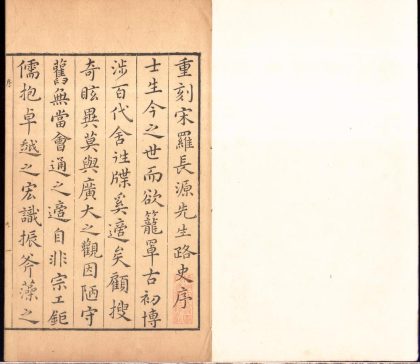 重刻宋羅長源先生路史序
士生今之世而欲籠罩古初博
涉百代舍往牒奚適矣顧搜
奇眩異莫與廣大之觀因陋守
舊無當會通之適自非宗工鉅
儒抱卓越之宏識振斧藻之
序